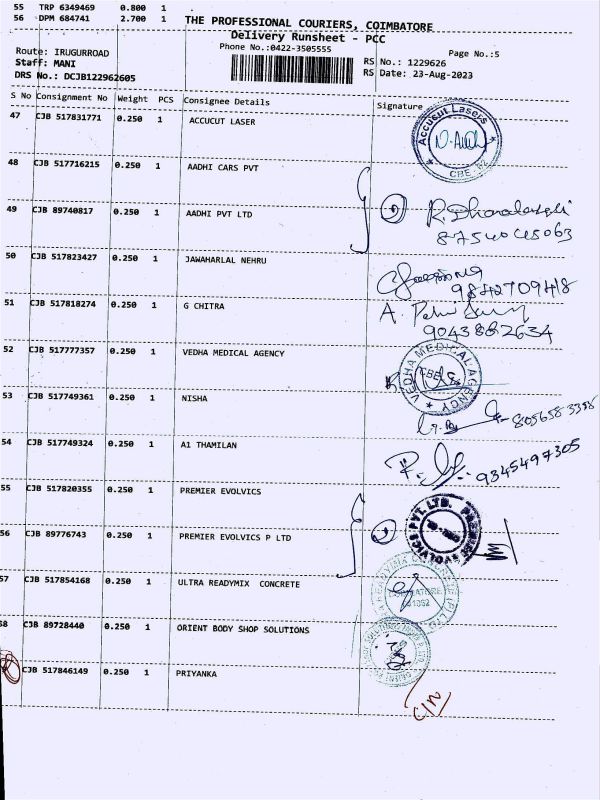 55 TRP 6349469 0.800 1
56 DPM 684741 2.700 1
THE PROFESSIONAL COURIERS, COIMBATORE
Delivery Runsheet - PCC
Phone No.:0422-3505555
Page No.:5
Route: IRUGURROAD
RS No.: 1229626
Staff: MANI
RS Date: 23-Aug-2023
DRS No.: DCJB122962605
S No Consignment No Weight PCS Consignee Details Signature
47 CJB 517831771 0.250 1 ACCUCUT LASER
Accucut Lasers
CBE
48 CJB 517716215 0.250 1 AADHI CARS PVT
49 CJB 89740817 0.250 1 AADHI PVT LTD
50 CJB 517823427 0.250 1 JAWAHARLAL NEHRU
9842709418
51 CJB 517818274 0.250 1 G CHITRA
9043882634
52 CJB 517777357 0.250 1 VEDHA MEDICAL AGENCY
VEDHA MEDICAL AGENCY
53 CJB 517749361 0.250 1 NISHA
54 CJB 517749324 0.250 1 A1 THAMILAN
9345497305
55 CJB 517820355 0.250 1 PREMIER EVOLVICS
56 CJB 89776743 0.250 1 PREMIER EVOLVICS P LTD
PREMIER EVOLVICS PVT. LTD.
57 CJB 517854168 0.250 1 ULTRA READYMIX CONCRETE
58 CJB 89728440 0.250 1 ORIENT BODY SHOP SOLUTIONS
CJB 517846149 0.250 1 PRIYANKA